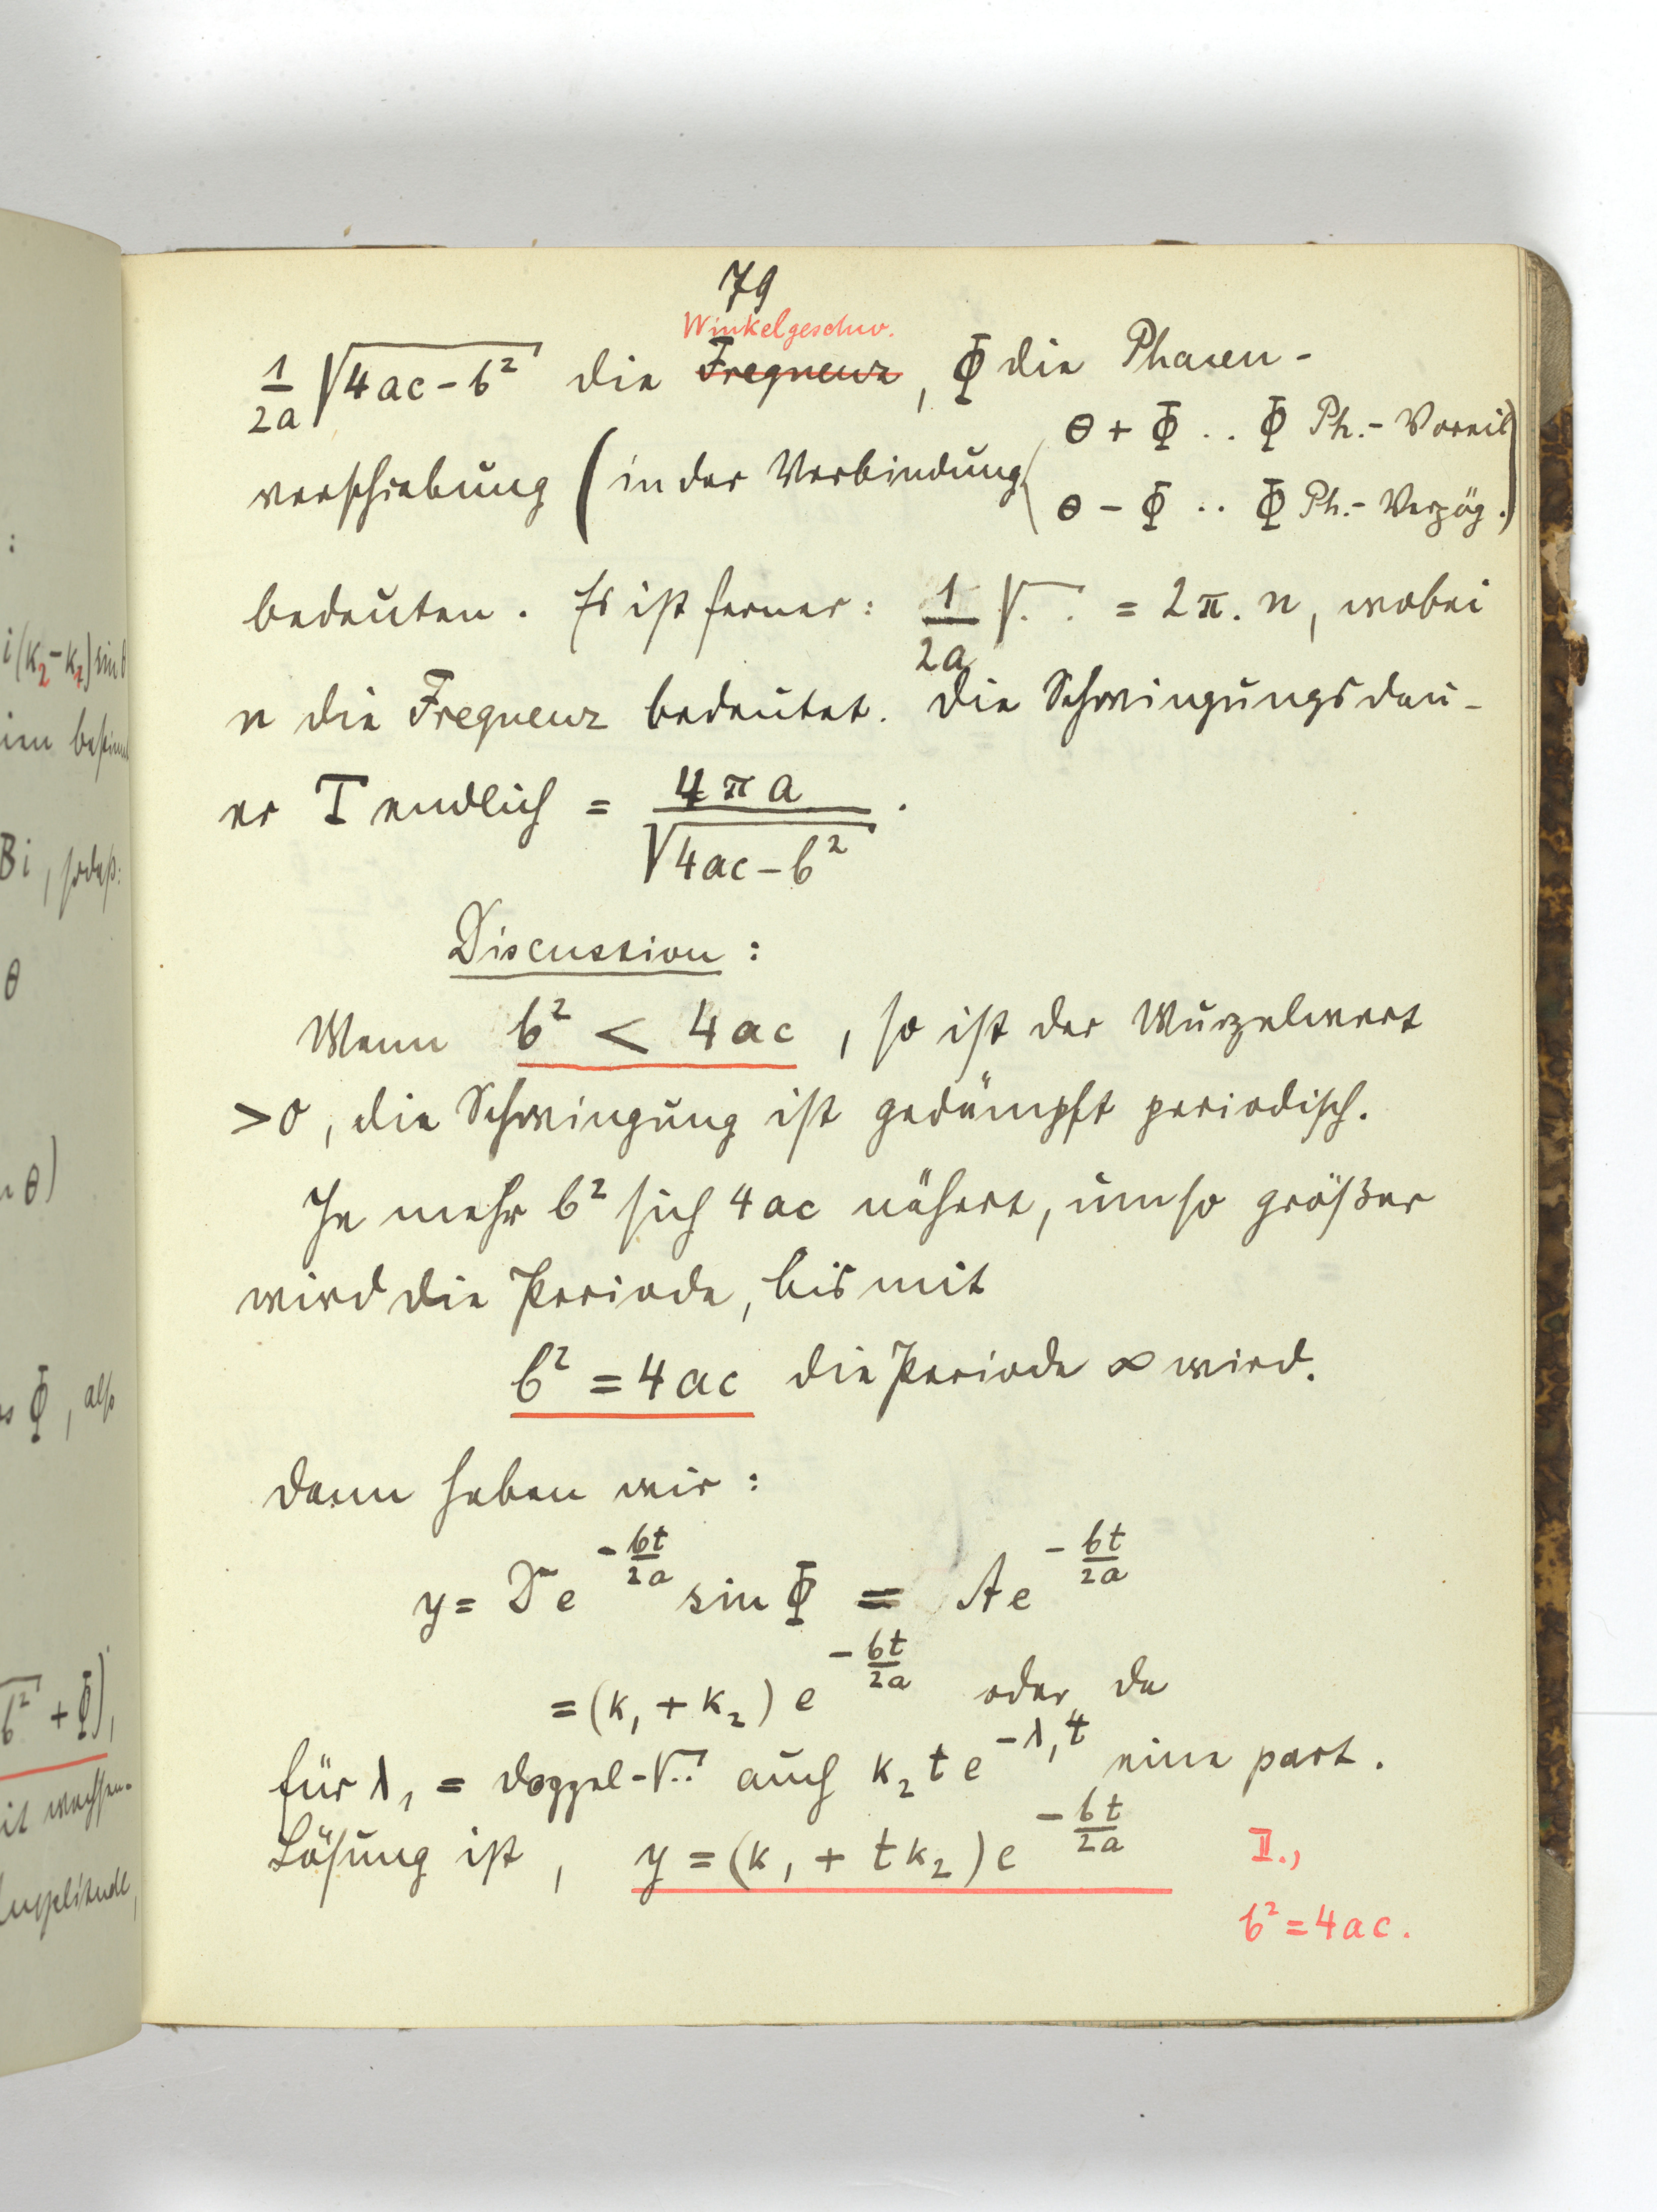 79
Winkelgeschw.
1/2a √4ac-b² die Frequenz, Φ die Phasen-
verschiebung (in der Verbindung (θ + Φ .. Φ Ph.-Voreil)
θ - Φ .. Φ Ph.-Verzög.)
bedeuten. Es ist ferner: 1/2a √.. = 2π.n, wobei
n die Frequenz bedeutet. Die Schwingungsdau-
er T endlich = 4πa/√4ac-b² .
Discussion:
Wenn b² < 4ac, so ist der Wurzelwert
>0, die Schwingung ist gedämpft periodisch.
Je mehr b² sich 4ac nähert, umso größer
wird die Periode, bis mit
b² = 4ac die Periode ∞ wird.
Dann haben wir:
y = D e^(-bt/2a) sin Φ = A e^(-bt/2a)
= (k₁ + k₂) e^(-bt/2a) oder da
für λ₁ = Doppel-√.. auch k₂ t e^(-λ₁t) eine part.
Lösung ist, y = (k₁ + t k₂) e^(-bt/2a) II.,
b² = 4ac.
i(k₂-k₁) sin θ
Bi, sodaß:
θ
θ)
Φ, also
b² + Φ),
Amplitude,